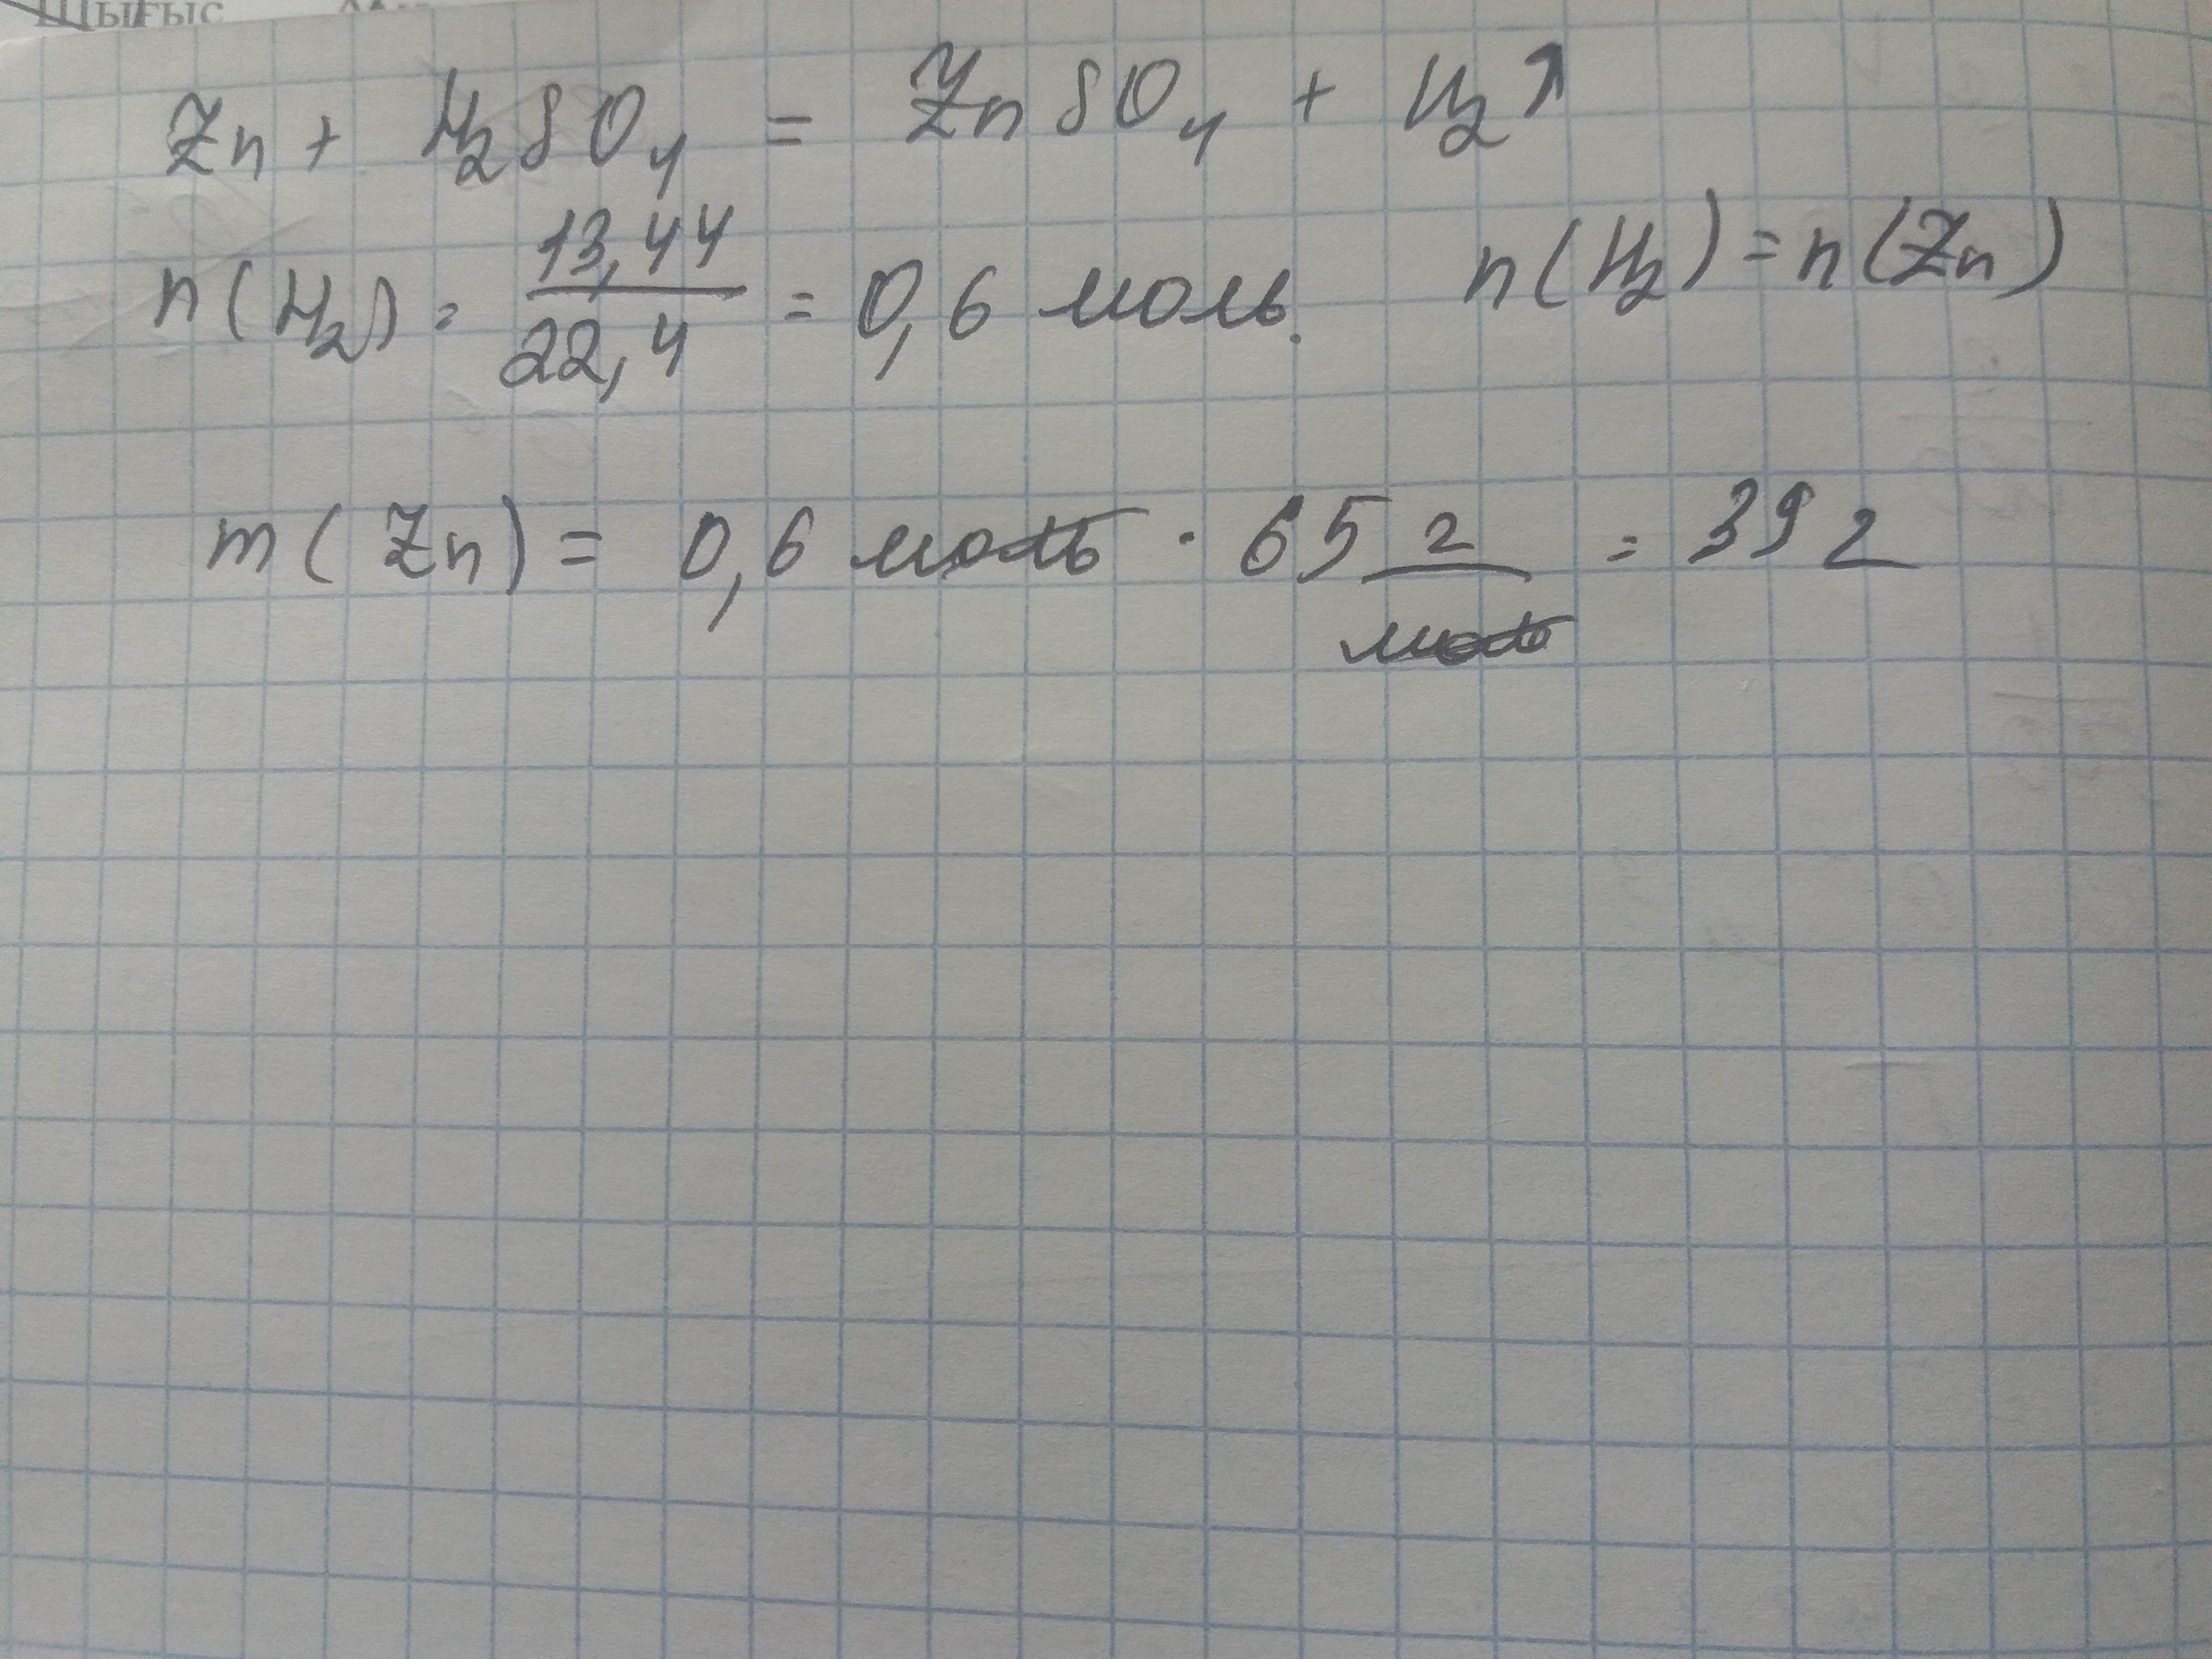 Щығыс
Zn + H₂SO₄ = ZnSO₄ + H₂↑
n(H₂) = 13,44 / 22,4 = 0,6 моль. n(H₂) = n(Zn)
m(Zn) = 0,6 моль · 65 г/моль = 39 г